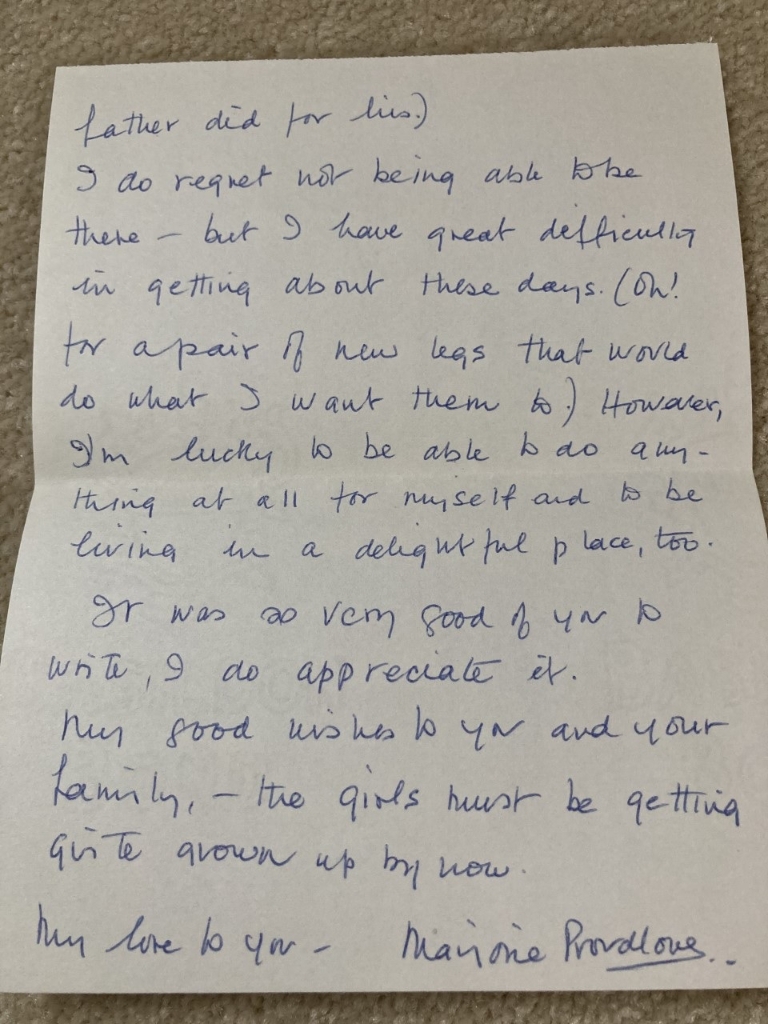 father did for his.)
I do regret not being able to be
there – but I have great difficulty
in getting about these days. (Oh!
for a pair of new legs that would
do what I want them to) However,
I'm lucky to be able to do any-
thing at all for myself and to be
living in a delightful place, too.
It was so very good of you to
write, I do appreciate it.
My good wishes to you and your
family, – the girls must be getting
quite grown up by now.
My love to you – Marjorie Proudlove..